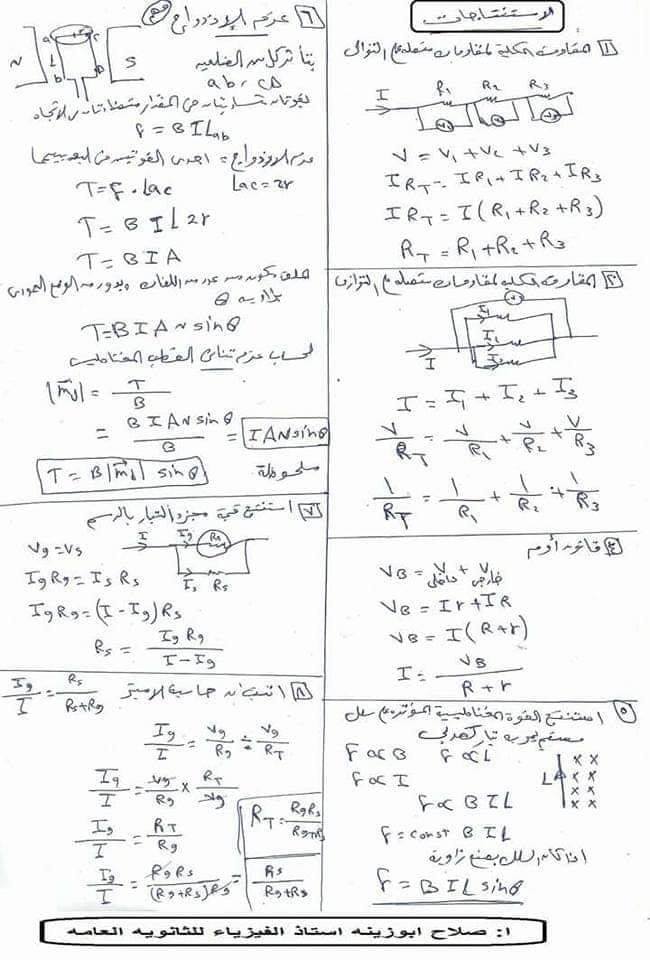 الاستنتاجات
١ المقاومة الكلية لمقاومات متصله على التوالى
I R₁ R₂ R₃
V = V₁ + V₂ + V₃
I R_T = I R₁ + I R₂ + I R₃
I R_T = I (R₁ + R₂ + R₃)
R_T = R₁ + R₂ + R₃
٢ المقاومة الكلية لمقاومات متصله على التوازى
V
I₁
I₂
I₃
I
I = I₁ + I₂ + I₃
V/R_T = V/R₁ + V/R₂ + V/R₃
1/R_T = 1/R₁ + 1/R₂ + 1/R₃
قانون أوم
V_B = V خارجى + V داخلى
V_B = I r + I R
V_B = I (R + r)
I = V_B / R + r
٥ استنتج القوة المغناطيسية المؤثره على سلك
مستقيم يمر به تيار كهربى
F ∝ B F ∝ L
F ∝ I
F ∝ B I L
L x x x x x x x x
F = const B I L
اذا كان السلك يصنع زاوية
F = B I L sin θ
٦ عزم الازدواج
N a c L b D S
يتأثر كل من الضلعين
ab , CD
بقوتان متساويتان فى المقدار متضادتان فى الاتجاه
F = B I L ab
عزم الازدواج = احدى القوتين فى البعد بينهما
T = F . Lac Lac = 2r
T = B I L 2r
T = B I A
ملف يتكون من عدد من اللفات ويدور من الوضع العمودى
بزاويه θ
T = B I A N sin θ
لحساب عزم ثنائى القطب المغناطيسى
|m⃗d| = T/B
= B I A N sin θ / B = I A N sin θ
ملحوظة
T = B |m⃗d| sin θ
٧ استنتج قيمة مجزء التيار بالرسم
I Ig Rg
Is Rs
Vg = Vs
Ig Rg = Is Rs
Ig Rg = (I − Ig) Rs
Rs = Ig Rg / I − Ig
٨ اثبت ان حساسية الاميتر Ig/I = Rs/Rs+Rg
Ig/I = Vg/Rg ÷ Vg/R_T
Ig/I = Vg/Rg × R_T/Vg
Ig/I = R_T/Rg
R_T = Rg Rs/Rg+Rs
Ig/I = Rg Rs/(Rg+Rs) Rg = Rs/Rg+Rs
ا: صلاح ابوزينه استاذ الفيزياء للثانويه العامه